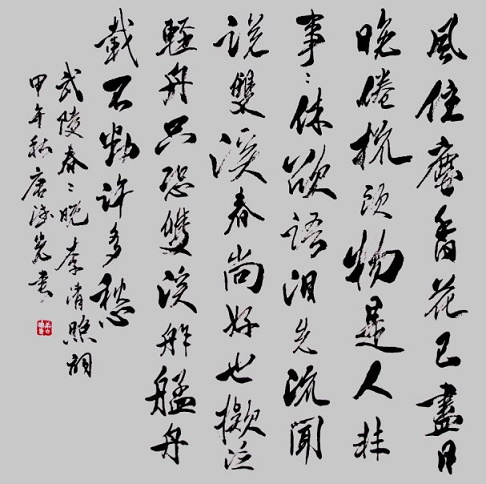 風住塵香花已盡日
晚倦梳頭物是人非
事〻休欲語泪先流聞
説雙溪春尚好也擬泛
輕舟只恐雙溪舴艋舟
載不動許多愁
武陵春〻晚李清照詞
甲午秋唐光書